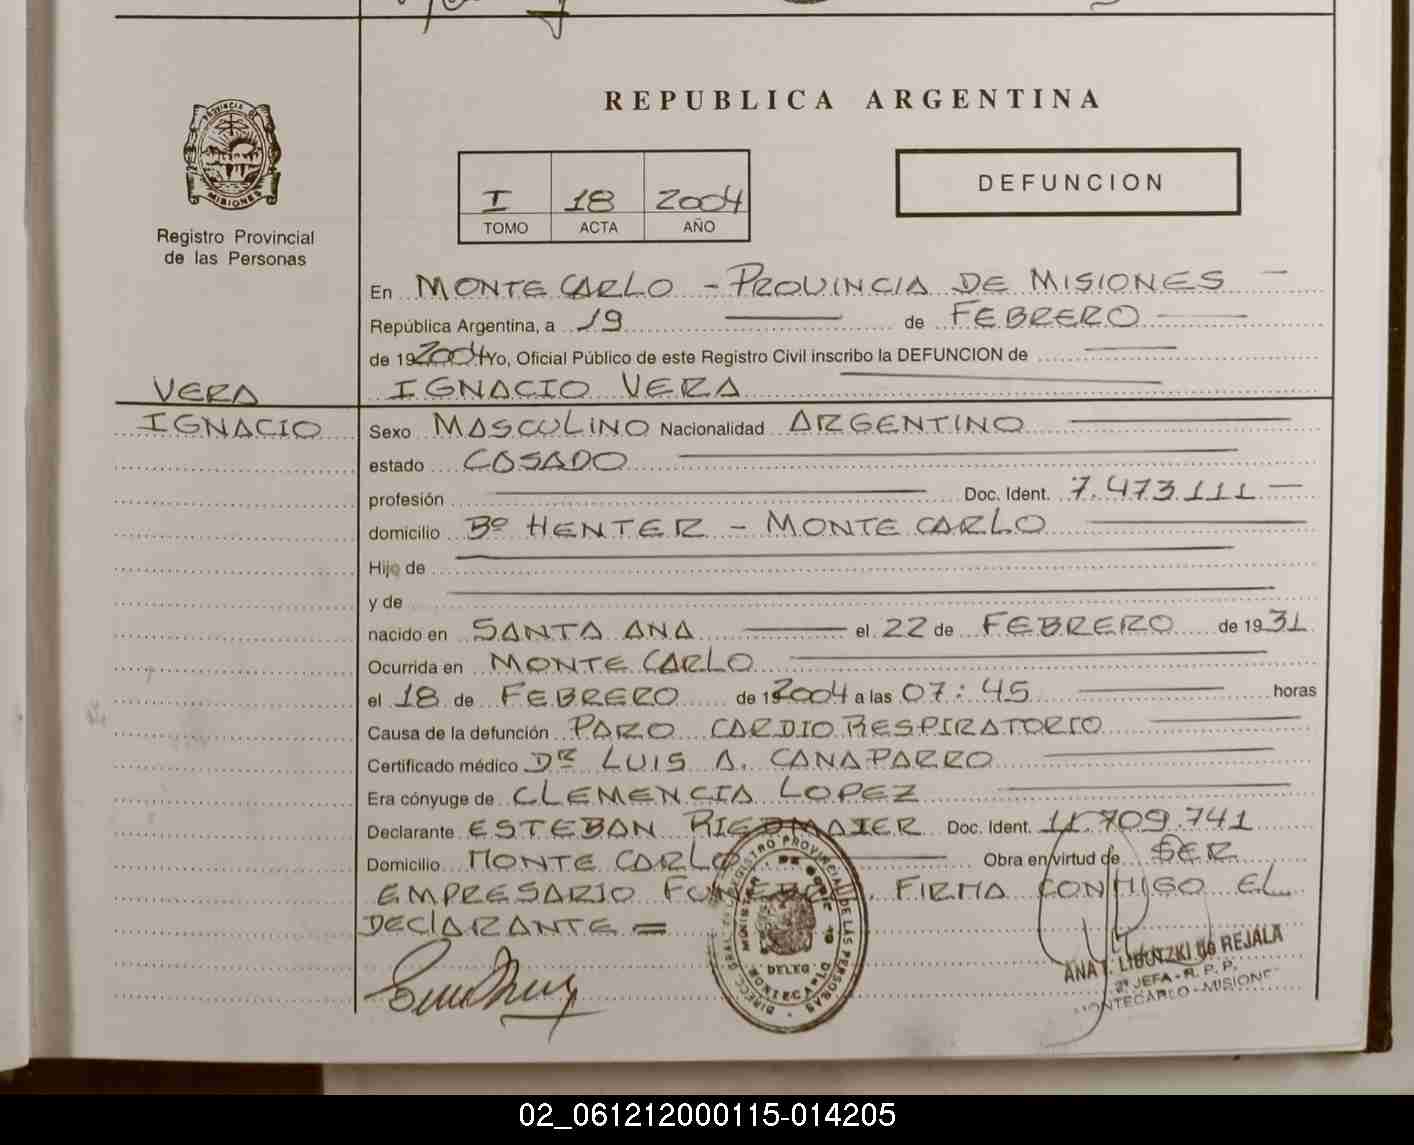 REPUBLICA ARGENTINA
PROVINCIA
MISIONES
Registro Provincial
de las Personas
I 18 2004
TOMO ACTA AÑO
DEFUNCION
En MONTE CARLO - PROVINCIA DE MISIONES -
República Argentina, a 19 de FEBRERO
de 192004 Yo, Oficial Público de este Registro Civil inscribo la DEFUNCION de
VERA IGNACIO VERA
IGNACIO Sexo MASCULINO Nacionalidad ARGENTINO
estado CASADO
profesión Doc. Ident. 7.473.111 -
domicilio Bº HENTER - MONTE CARLO
Hijo de
y de
nacido en SANTA ANA el 22 de FEBRERO de 1931
Ocurrida en MONTE CARLO
el 18 de FEBRERO de 192004 a las 07:45 horas
Causa de la defunción PARO CARDIO RESPIRATORIO
Certificado médico DR LUIS A. CANAPARRO
Era cónyuge de CLEMENCIA LOPEZ
Declarante ESTEBAN RIEDMAIER Doc. Ident. 11.709.741
Domicilio MONTE CARLO Obra en virtud de SER
EMPRESARIO FUNEBRE. FIRMA CONMIGO EL
DECLARANTE =
REGISTRO PROVINCIAL DE LAS PERSONAS
DELEG.
MONTECARLO
ANA T. LIBUTZKI de REJALA
2ª JEFA - R. P. P.
MONTECARLO - MISIONES
02_061212000115-014205